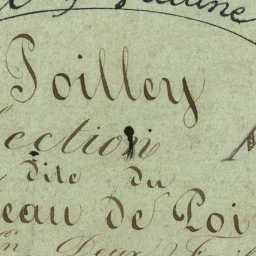 Poilley
ection
dite du
eau de Poi